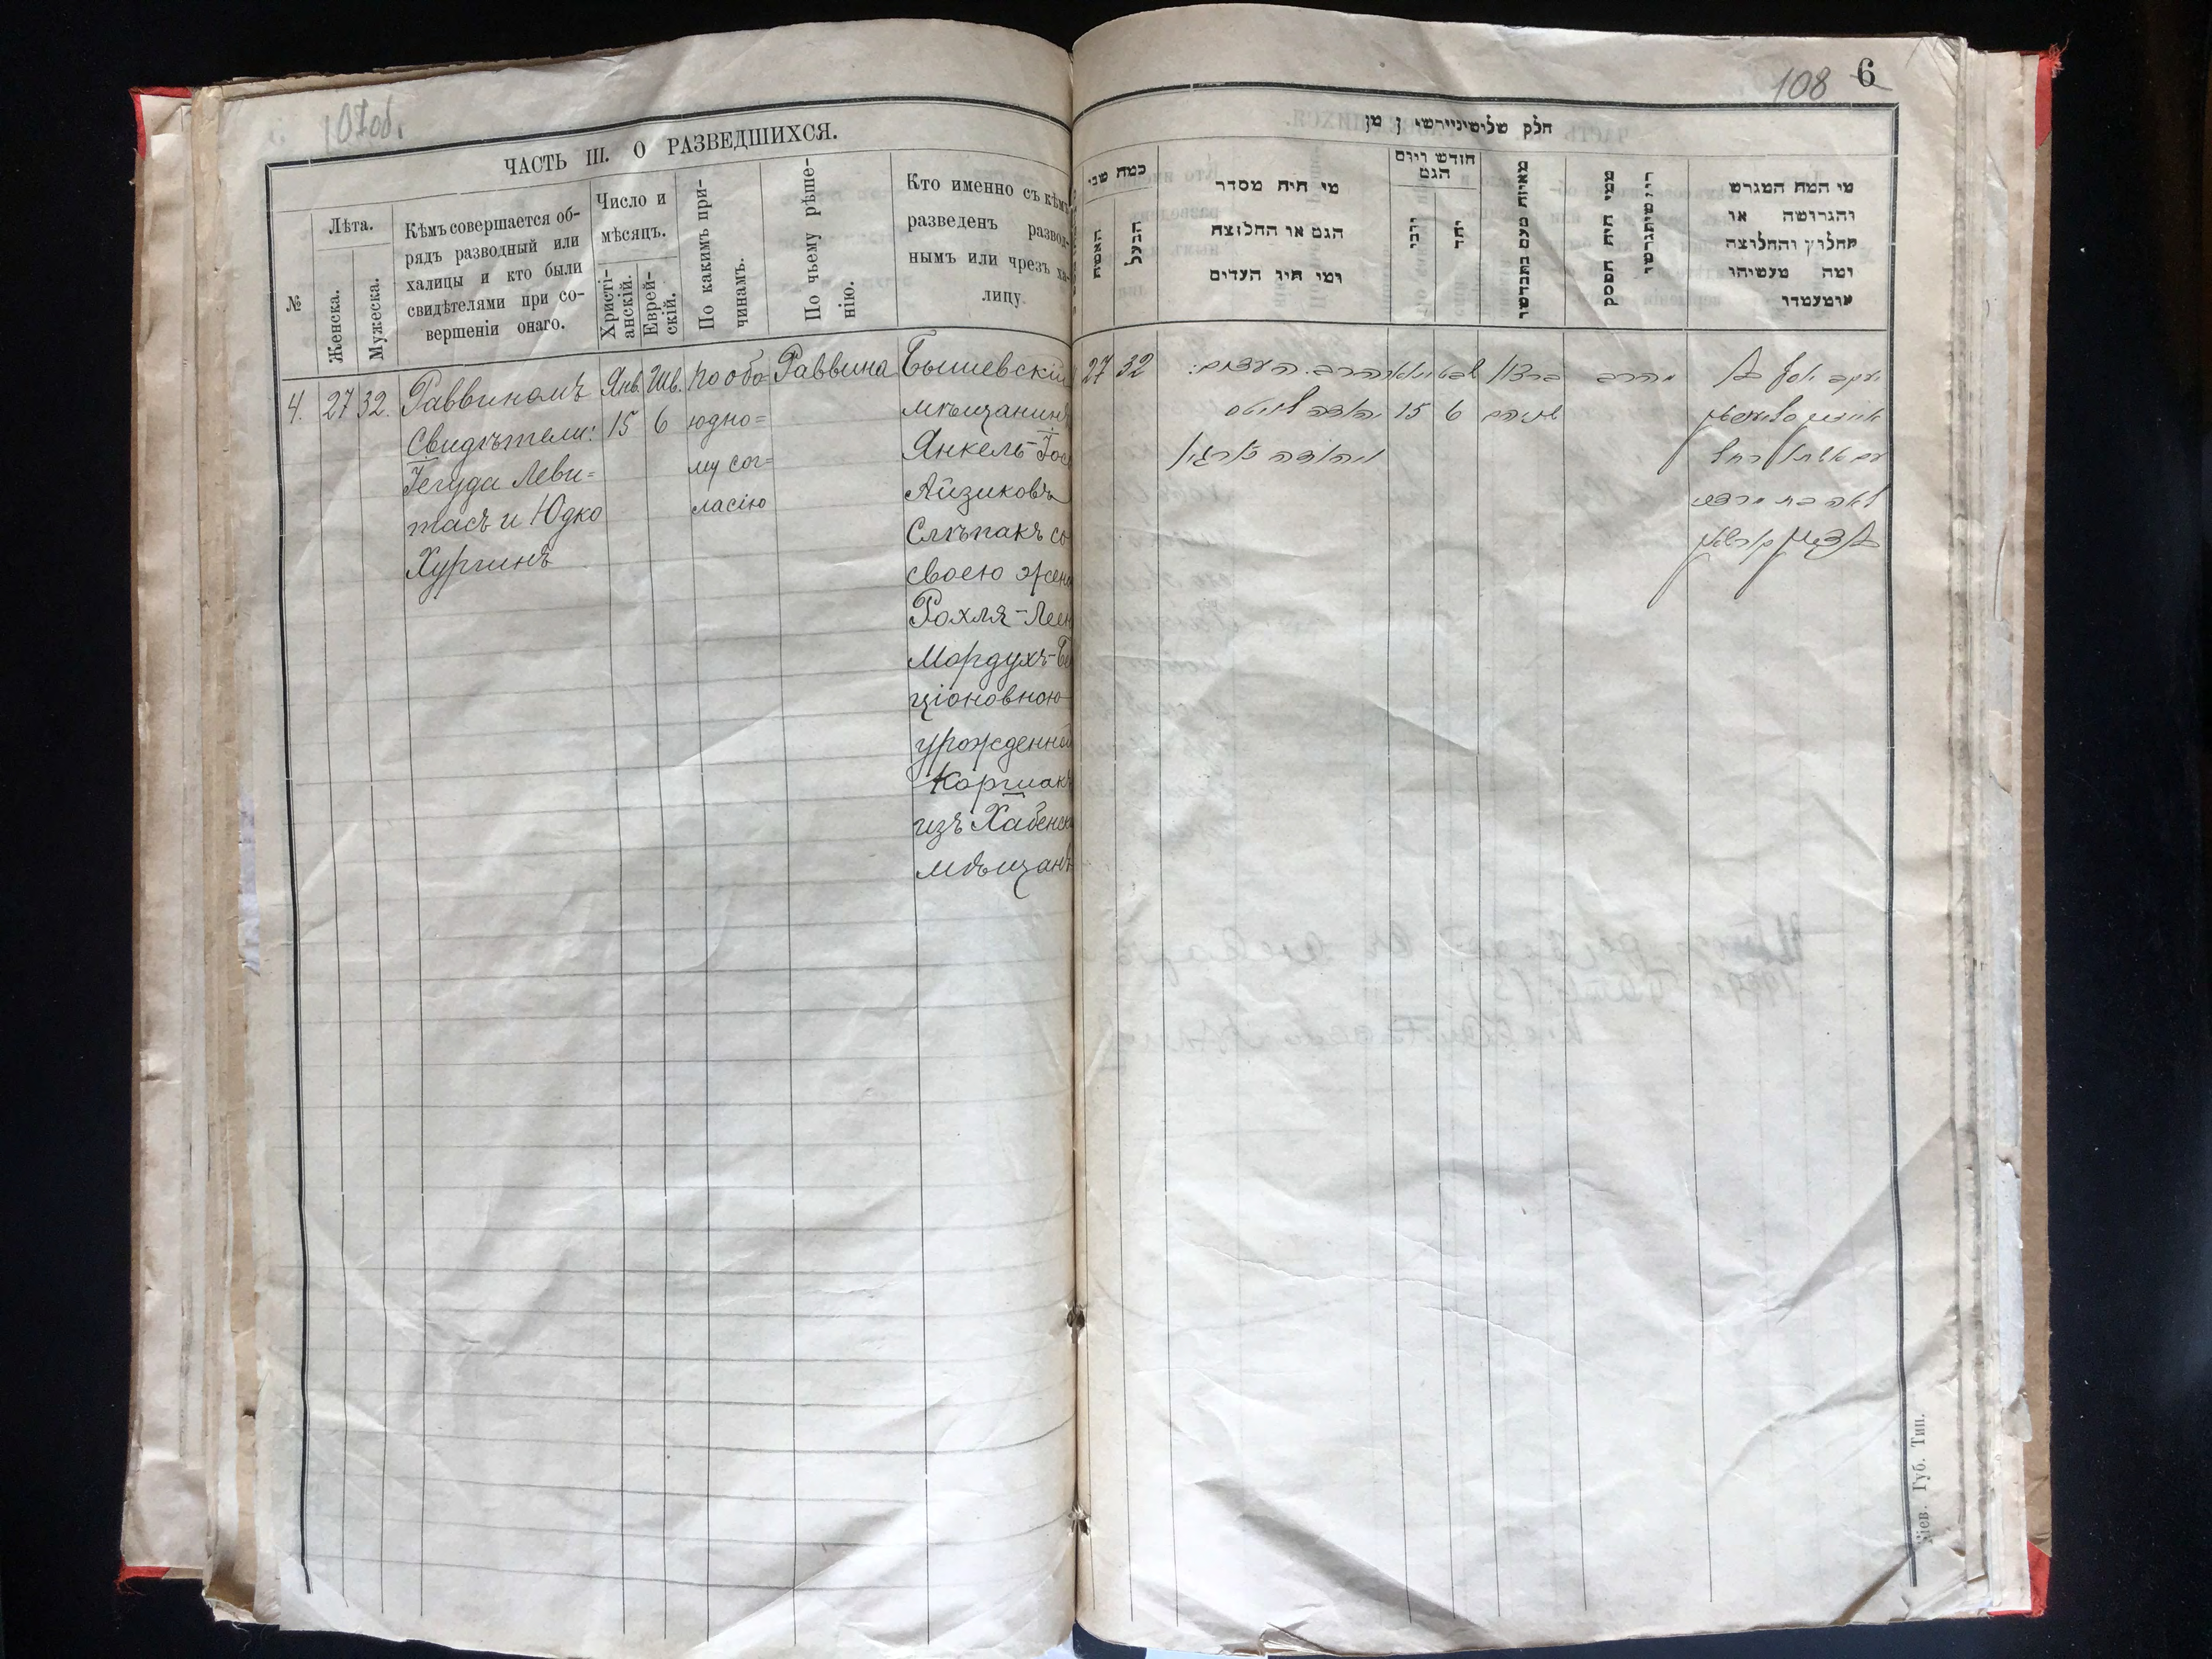 107об.
ЧАСТЬ III. О РАЗВЕДШИХСЯ.
№
Лѣта.
Женска.
Мужеска.
Кѣмъ совершается об-
рядъ разводный или
халицы и кто были
свидѣтелями при со-
вершеніи онаго.
Число и
мѣсяцъ.
Христі-
анскій.
Еврей-
скій.
По какимъ при-
чинамъ.
По чьему рѣше-
нію.
Кто именно съ кѣмъ
разведенъ развод-
нымъ или чрезъ ха-
лицу.
4.
27
32.
Раввиномъ
Свидѣтели:
Іегуда Леви-
тасъ и Юдко
Хургинъ
Янв.
15
Шв.
6
По обо-
юдно-
му сог-
ласію
Раввина
Бышевскій
мѣщанинъ
Янкель-Іос
Айзиковъ
Слѣпакъ со
своею жен
Рохля-Лее
Мордухъ-Бе
ціоновною
урожденной
Коршакъ
изъ Хабенск
мѣщанъ
108 6
חלק שלישי
כמה שני
האשה
הבעל
מי היה מסדר
הגט או החלוצה
ומי היו העדים
חודש ויום
הגט
מאיזה טעם נתגרשו
ממי היה הפסק
מי המה המגרש
והגרושה או
החלוץ והחלוצה
ומה מעשיהו
27
32
הרב. העדים:
יהודה לוויטס
ויהודה
15
שבט
6
ברצון
שניהם
מהרב
יעקב יוסף ב
עם אשתו רחל
לאה בת מרדכי
Кіев. Губ. Тип.